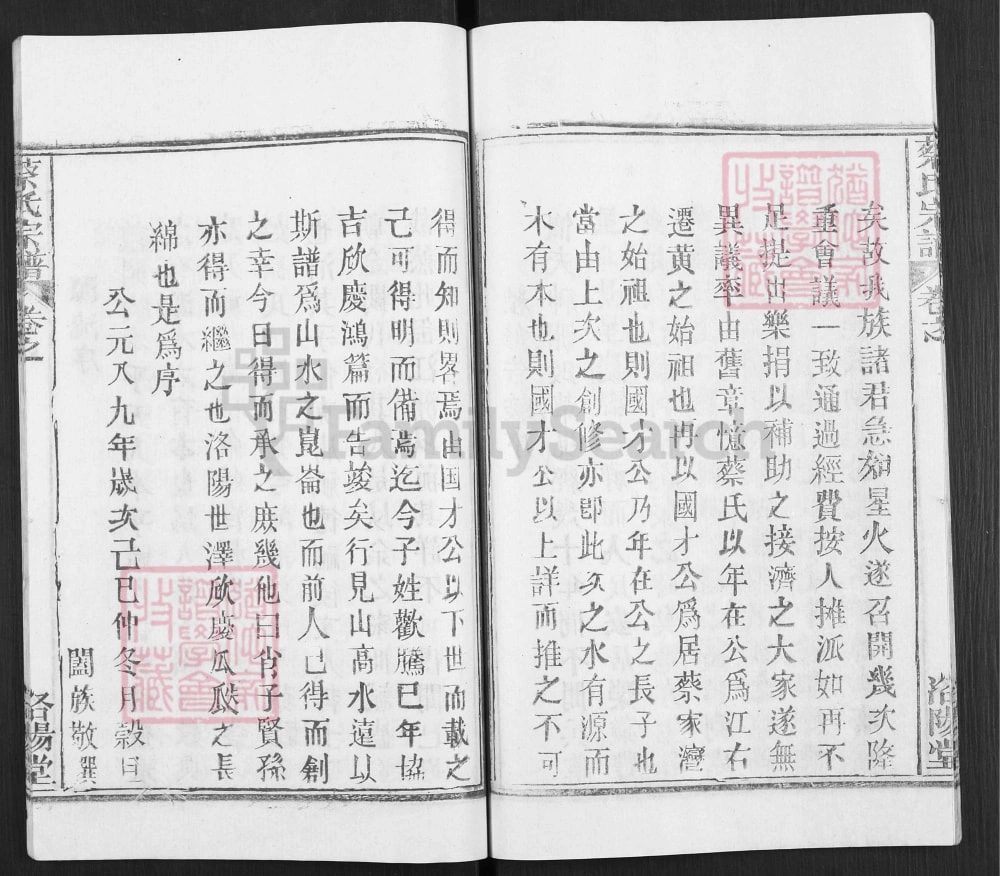 蔡氏宗譜 卷之
洛陽堂
矣故我族諸君急如星火遂召開幾次隆
重會議一致通過經費按人攤派如再不
足提出樂捐以補助之接濟之大家遂無
異議率由舊章憶蔡氏以年在公爲江右
遷黃之始祖也再以國才公爲居蔡家灣
之始祖也則國才公乃年在公之長子也
當由上次之創修亦卽此次之水有源而
木有本也則國才公以上詳而推之不可
得而知則畧焉由国才公以下世而載之
己可得明而備焉迄今子姓歡騰巳年協
吉欣慶鴻篇而告竣矣行見山高水遠以
斯譜爲山水之崑崙也而前人已得而創
之幸今日得而承之庶幾他曰肖子賢孫
亦得而繼之也洛陽世澤欣慶瓜瓞之長
綿也是爲序
公元八九年歲次己巳仲冬月穀旦
闔族敬撰
蔡氏宗譜 卷之
洛陽堂
FamilySearch